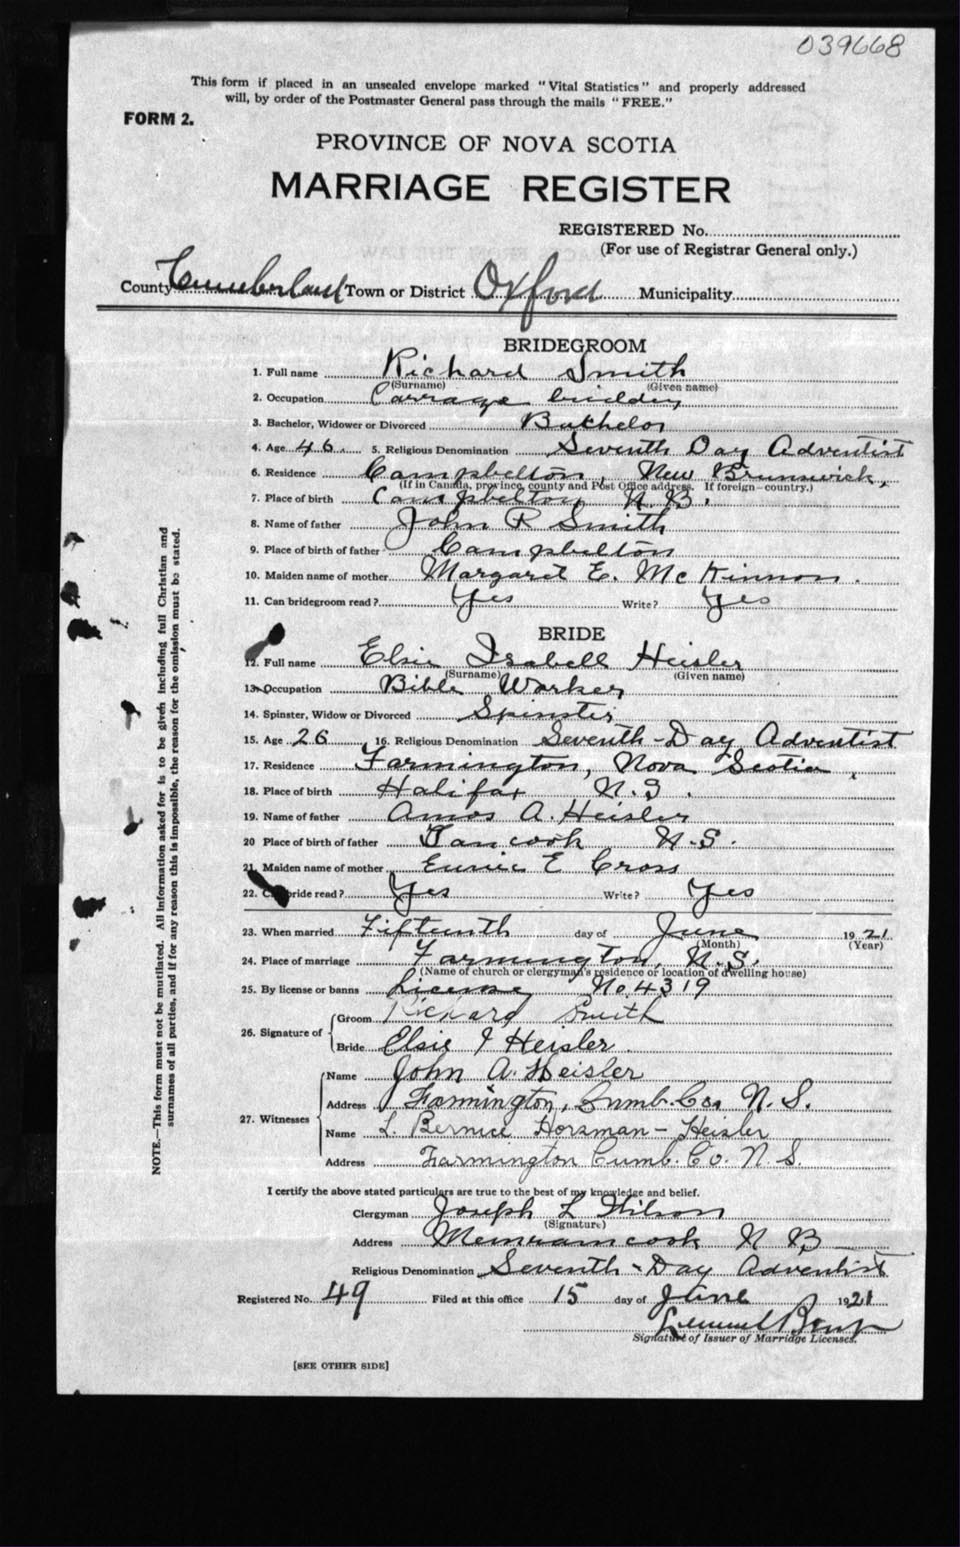 039668
This form if placed in an unsealed envelope marked "Vital Statistics" and properly addressed
will, by order of the Postmaster General pass through the mails "FREE."
FORM 2.
PROVINCE OF NOVA SCOTIA
MARRIAGE REGISTER
REGISTERED No.
(For use of Registrar General only.)
County Cumberland Town or District Oxford Municipality
BRIDEGROOM
1. Full name Richard Smith
(Surname) (Given name)
2. Occupation Carrage builder
3. Bachelor, Widower or Divorced Bachelor
4. Age 46. 5. Religious Denomination Seventh Day Adventist
6. Residence Campbelton, New Brunswick,
(If in Canada, province, county and Post Office address. If foreign—country.)
7. Place of birth Campbelton N.B.
8. Name of father John R Smith
9. Place of birth of father Campbelton
10. Maiden name of mother Margaret E. McKinnon.
11. Can bridegroom read? Yes Write? Yes
BRIDE
12. Full name Elsie Isabell Heisler
(Surname) (Given name)
13. Occupation Bible Worker
14. Spinster, Widow or Divorced Spinster
15. Age 26 16. Religious Denomination Seventh-Day Adventist
17. Residence Farmington, Nova Scotia,
18. Place of birth Halifax N.S.
19. Name of father Amos A. Heisler
20 Place of birth of father Tancook N.S.
21. Maiden name of mother Eunice E Cross
22. Can bride read? Yes Write? Yes
23. When married Fifteenth day of June 1921
(Month) (Year)
24. Place of marriage Farmington, N.S.
(Name of church or clergyman's residence or location of dwelling house)
25. By license or banns License No 4319
26. Signature of Groom Richard Smith
Bride Elsie I Heisler.
27. Witnesses Name John A. Heisler
Address Farmington, Cumb. Co, N.S.
Name L. Bernice Horsman-Heisler
Address Farmington Cumb. Co. N.S.
I certify the above stated particulars are true to the best of my knowledge and belief.
Clergyman Joseph L Wilson
(Signature)
Address Memramcook N B
Religious Denomination Seventh-Day Adventist
Registered No. 49 Filed at this office 15 day of June 1921
Lemuel
Signature of Issuer of Marriage Licenses.
[SEE OTHER SIDE]
NOTE.—This form must not be mutilated. All information asked for is to be given including full Christian and
surnames of all parties, and if for any reason this is impossible, the reason for the omission must be stated.